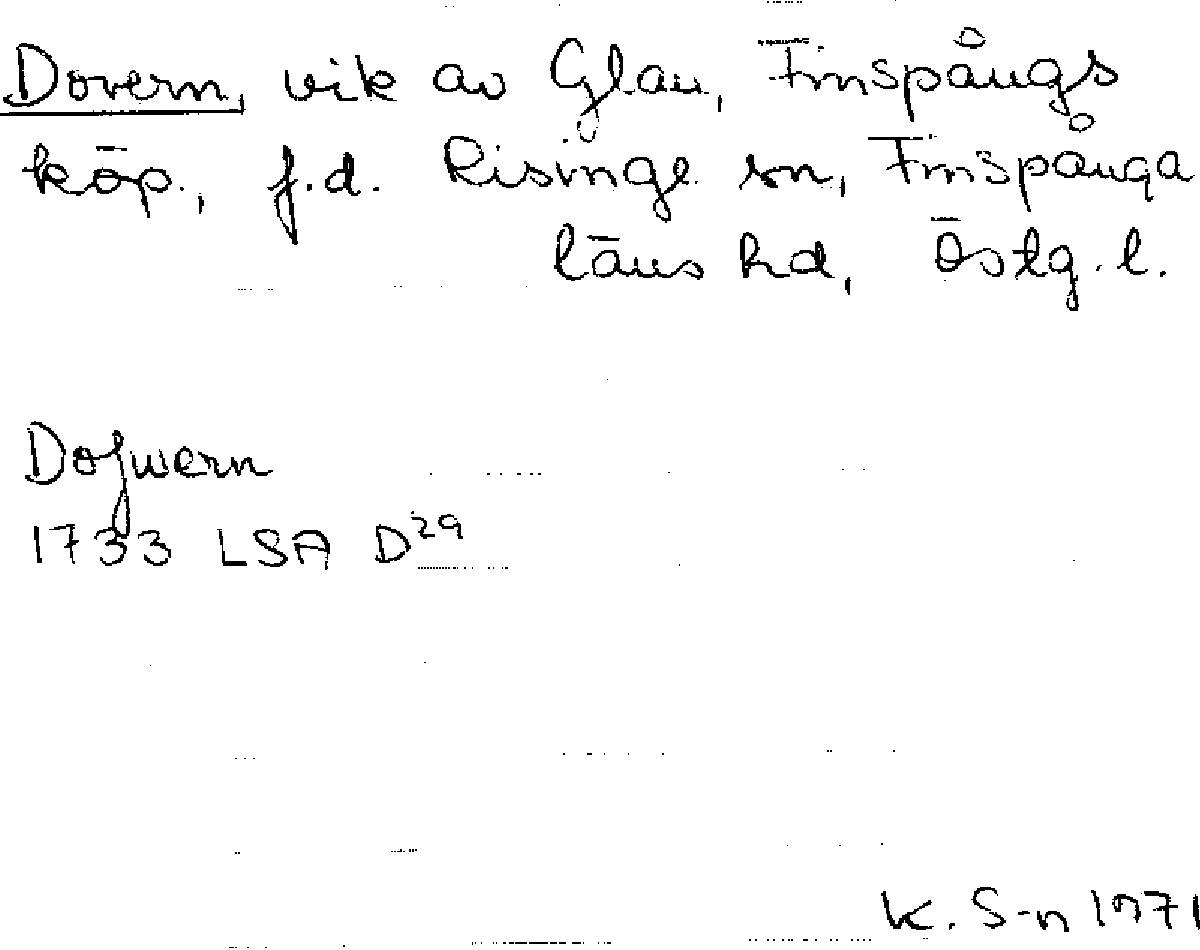 Dovern, vik av Glan, Finspångs
köp., f.d. Risinge sn, Finspånga
läns hd, Östg. l.
Dofwern
1733 LSA D29
K. S-n 1971